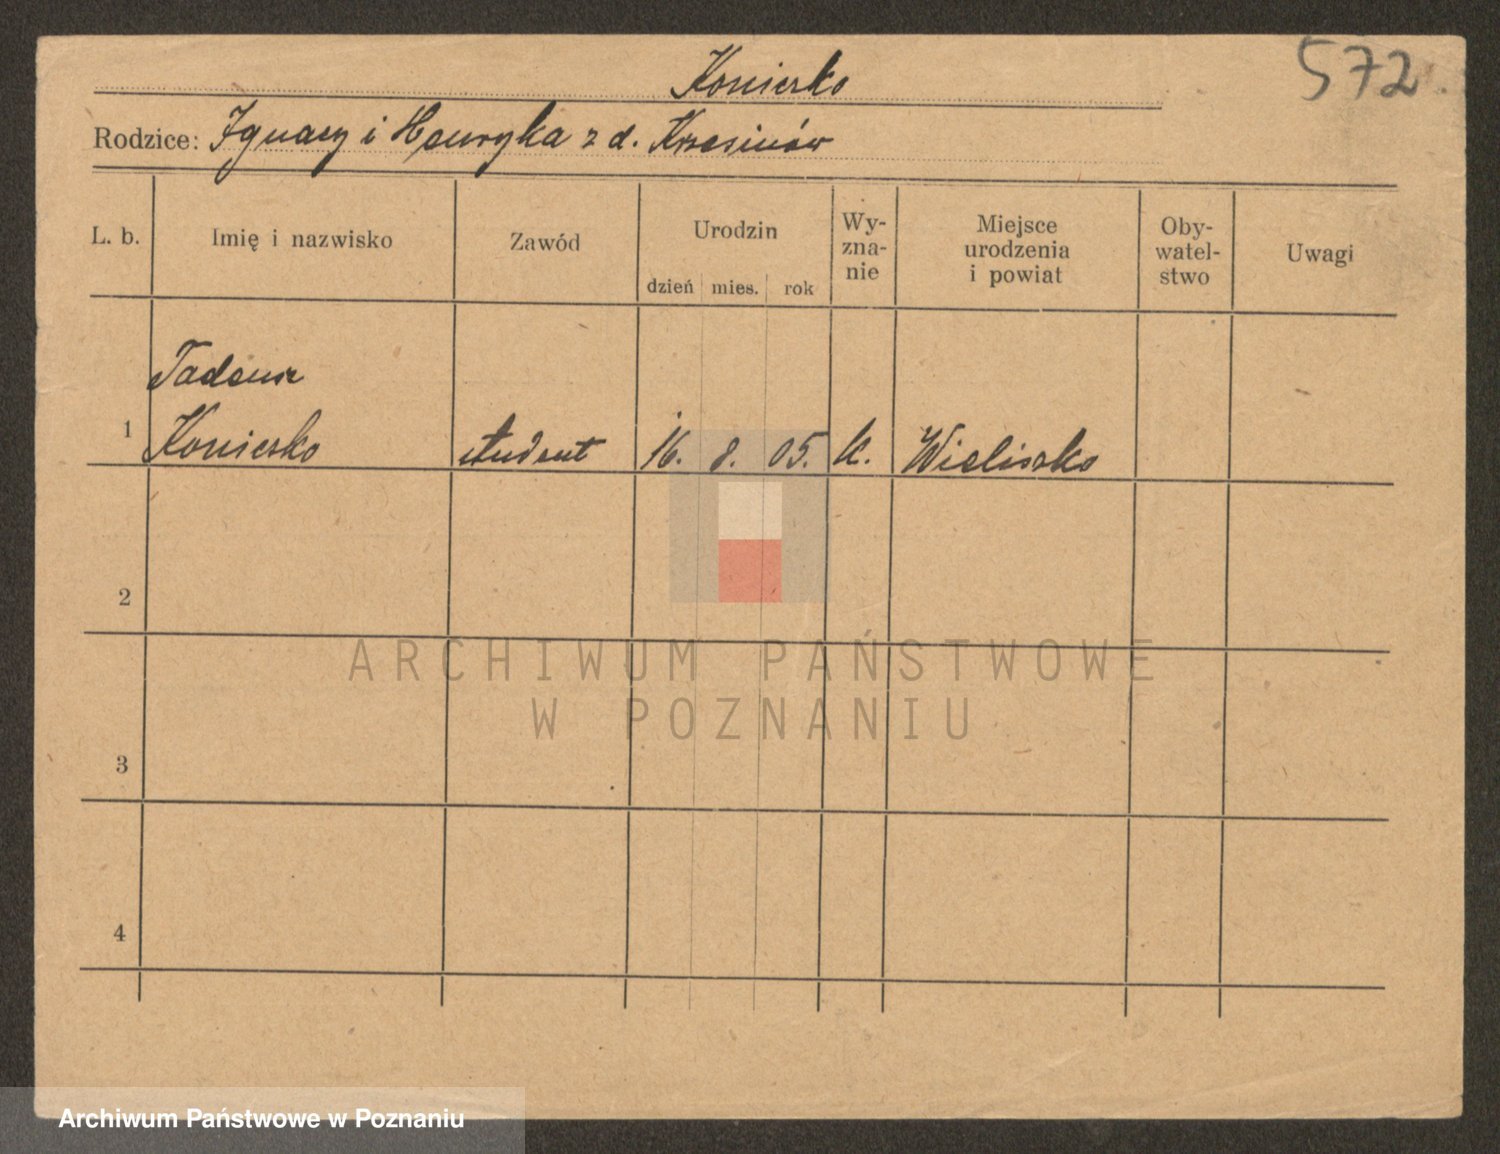 572
Konieczko
Rodzice: Ignacy i Henryka z d. Krzesinów
L. b. Imię i nazwisko Zawód Urodzin Wy-zna-nie Miejsce urodzenia i powiat Oby-watel-stwo Uwagi
dzień mies. rok
Tadeusz
1 Konieczko student 16. 8. 05. k. Wieliszko
2
ARCHIWUM PAŃSTWOWE
W POZNANIU
3
4
Archiwum Państwowe w Poznaniu